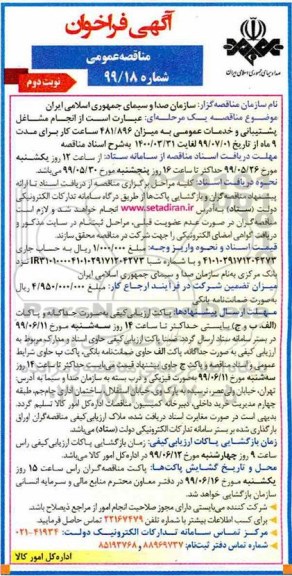 آگهی فراخوان
مناقصه عمومی
شماره ۹۹/۱۸
نوبت دوم
صدا و سیمای جمهوری اسلامی ایران
نام سازمان مناقصه‌گزار: سازمان صدا و سیمای جمهوری اسلامی ایران
موضوع مناقصه یک مرحله‌ای: عبارت است از انجام مشاغل
پشتیبانی و خدمات عمومی به میزان ۴۸۱/۸۹۶ ساعت کار برای مدت
۹ ماه از تاریخ ۹۹/۰۷/۰۱ لغایت ۱۴۰۰/۰۳/۳۱ به‌شرح اسناد مناقصه
مهلت دریافت اسناد مناقصه از سامانه ستاد: از ساعت ۱۲ روز یکشنبه
مورخ ۹۹/۰۵/۲۶ حداکثر تا ساعت ۱۶ روز پنجشنبه مورخ ۹۹/۰۵/۳۰ می‌باشد.
نحوه دریافت اسناد: کلیه مراحل برگزاری مناقصه از دریافت اسناد تا ارائه
پیشنهاد مناقصه‌گران و بازگشایی پاکت‌ها از طریق درگاه سامانه تدارکات الکترونیکی
دولت (ستاد) به آدرس www.setadiran.ir انجام خواهد شد و لازم است
مناقصه‌گران در صورت عدم عضویت قبلی، مراحل ثبت‌نام در سایت مذکور و
دریافت گواهی امضای الکترونیکی را جهت شرکت در مناقصه محقق سازند.
قیمت اسناد و نحوه واریز وجه: مبلغ ۱/۰۰۰/۰۰۰ ریال به حساب جاری
بانک مرکزی به‌نام سازمان صدا و سیمای جمهوری اسلامی ایران
میزان تضمین شرکت در فرآیند ارجاع کار: مبلغ ۴/۹۵۰/۰۰۰/۰۰۰ ریال
به‌صورت ضمانت‌نامه بانکی
مهلت ارسال پیشنهادها: پاکت ارزیابی کیفی به‌صورت جداگانه و پاکات
(الف، ب و ج) بایستی حداکثر تا ساعت ۱۴ روز سه‌شنبه مورخ ۹۹/۰۶/۱۱
بر بستر سامانه ستاد ارسال گردد. ضمنا پاکت ارزیابی کیفی حاوی اسناد و مدارک مربوط به
ارزیابی کیفی به صورت جداگانه، پاکت الف حاوی ضمانت‌نامه بانکی، پاکت ب حاوی شرایط
عمومی و اسناد مناقصه و پاکت ج حاوی پیشنهاد قیمت می‌بایست حداکثر تا ساعت ۱۴ روز
سه‌شنبه مورخ ۹۹/۰۶/۱۱ به‌صورت فیزیکی و درب بسته به سازمان صدا و سیما به آدرس:
زمان بازگشایی پاکات ارزیابی کیفی: زمان بازگشایی پاکات ارزیابی کیفی راس
ساعت ۹ روز چهارشنبه مورخ ۹۹/۰۶/۱۲ در اداره کل امور کالا می‌باشد.
محل و تاریخ گشایش پاکت‌ها: پاکت مناقصه‌گران راس ساعت ۱۵ روز
یکشنبه مورخ ۹۹/۰۶/۱۶ در دفتر معاون محترم منابع مالی و سرمایه انسانی
سازمان بازگشایی خواهد شد.
شرکت کننده می‌بایستی دارای مجوز صلاحیت انجام امور از مراجع ذیصلاح باشد.
برای کسب اطلاعات بیشتر با شماره تلفن ۲۲۱۶۷۴۷۹ تماس حاصل فرمایید.
مرکز تماس سامانه تدارکات الکترونیک دولت: ۴۱۹۳۴-۰۲۱
شماره تماس دفتر ثبت‌نام: ۸۸۹۶۹۷۳۷ و ۸۵۱۹۳۷۶۸
اداره کل امور کالا